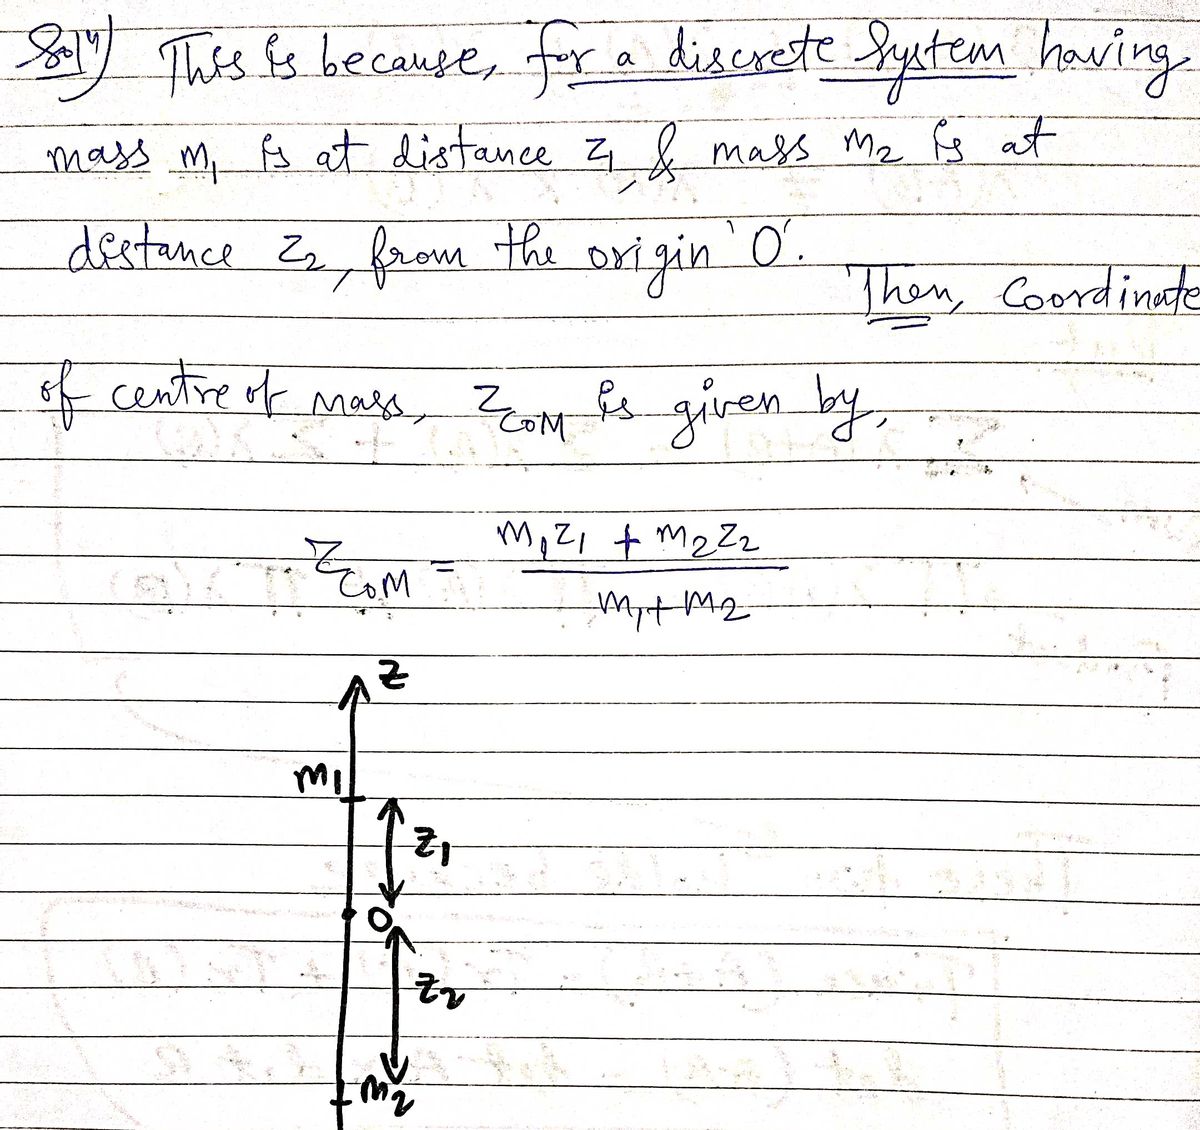 Solⁿ) This is because, for a discrete System having
mass m₁ is at distance z₁, & mass m₂ is at
distance z₂, from the origin 'O'.
Then, Coordinate
of centre of mass, z_COM is given by,
z_COM = (m₁z₁ + m₂z₂) / (m₁ + m₂)
z
m₁
z₁
O
z₂
m₂